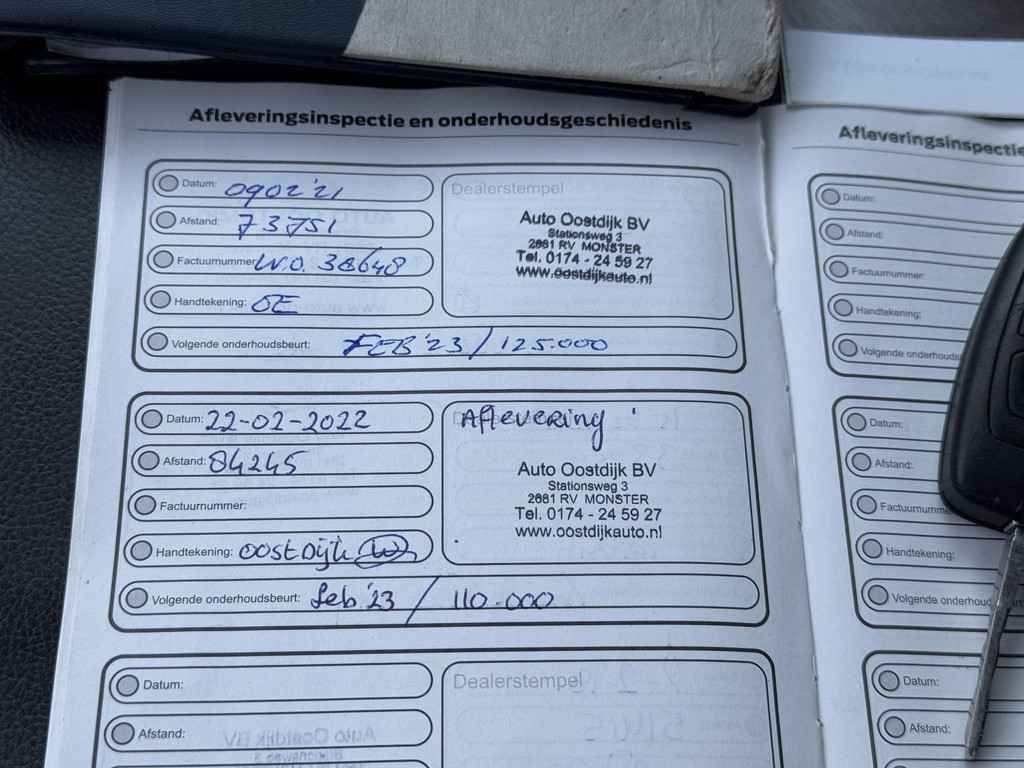 Afleveringsinspectie en onderhoudsgeschiedenis
Datum: 0902'21
Afstand: 73751
Factuurnummer: W.O. 38648
Handtekening: OE
Volgende onderhoudsbeurt: FEB '23 / 125.000
Dealerstempel
Auto Oostdijk BV
Stationsweg 3
2681 RV MONSTER
Tel. 0174 - 24 59 27
www.oostdijkauto.nl
Datum: 22-02-2022
Afstand: 84245
Factuurnummer:
Handtekening: Oostdijk
Volgende onderhoudsbeurt: feb '23 / 110.000
Aflevering
Auto Oostdijk BV
Stationsweg 3
2681 RV MONSTER
Tel. 0174 - 24 59 27
www.oostdijkauto.nl
Datum:
Afstand:
Dealerstempel
Afleveringsinspectie
Datum:
Afstand:
Factuurnummer:
Handtekening:
Volgende onderhouds
Datum:
Afstand:
Factuurnumme
Handtekening:
Volgende onderhoud
Datum:
Afstand: